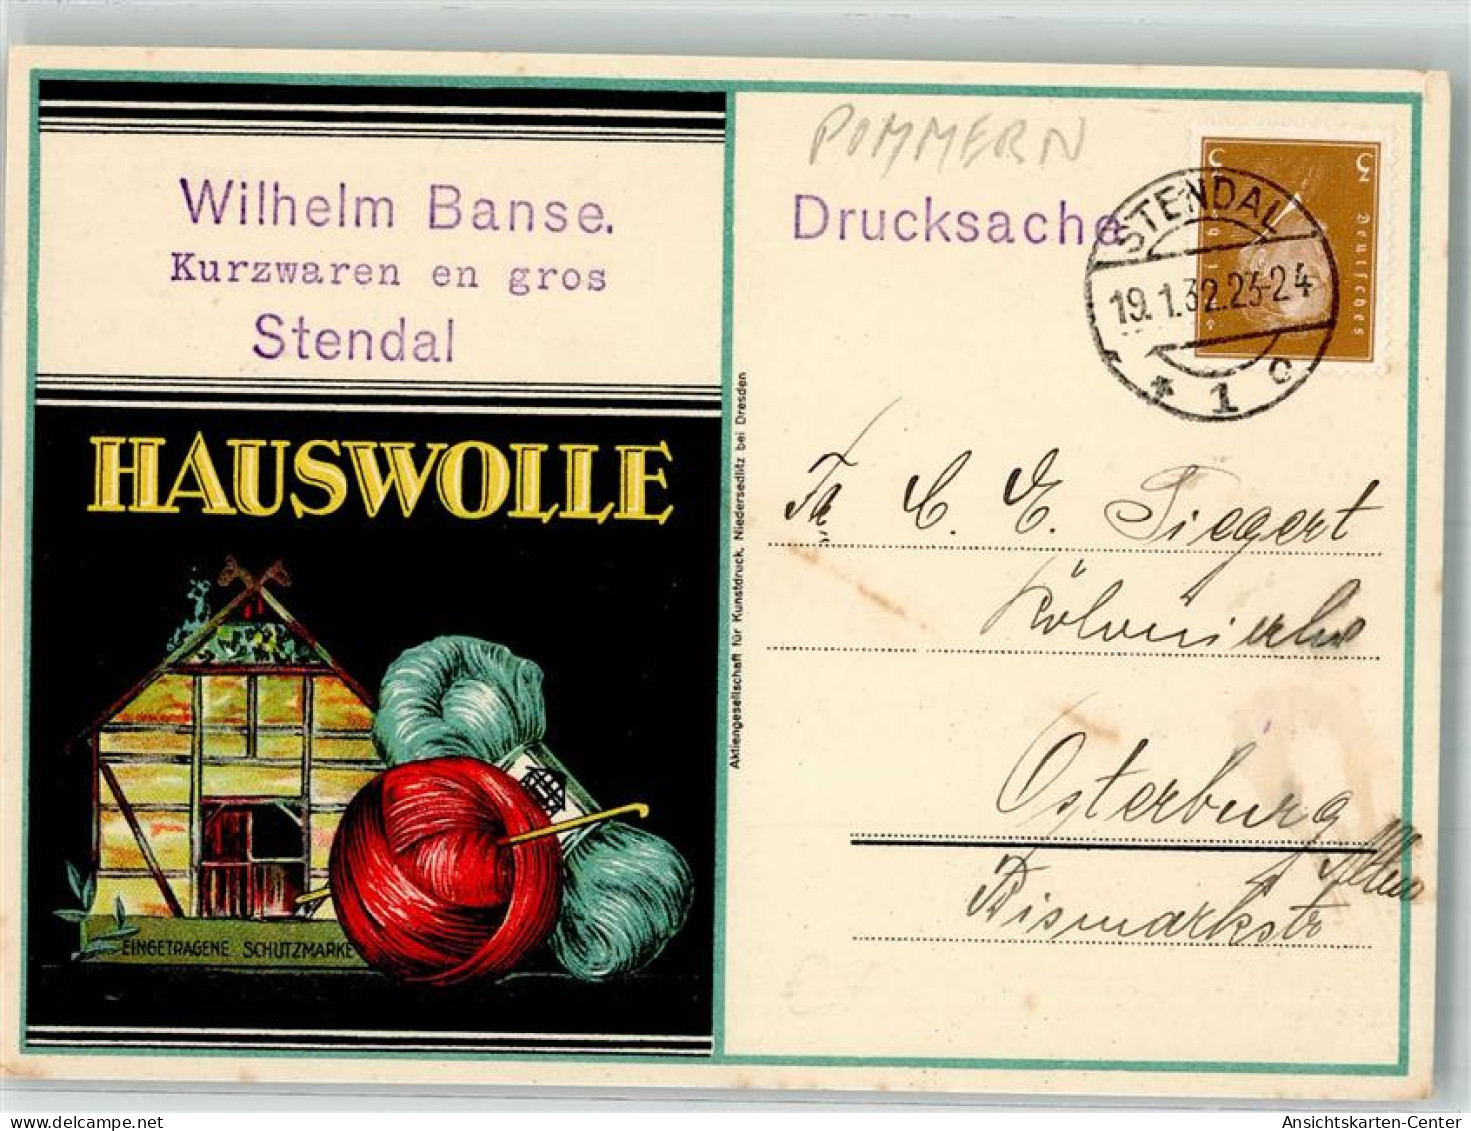 Wilhelm Banse.
Kurzwaren en gros
Stendal
HAUSWOLLE
EINGETRAGENE SCHUTZMARKE
Aktiengesellschaft für Kunstdruck, Niedersedlitz bei Dresden
POMMERN
Drucksache
STENDAL
19.1.32.23-24
* 1 c
3 3
Deutsches
Fa. C. E. Siegert
Osterburg
Bismarkstr
Ansichtskarten-Center